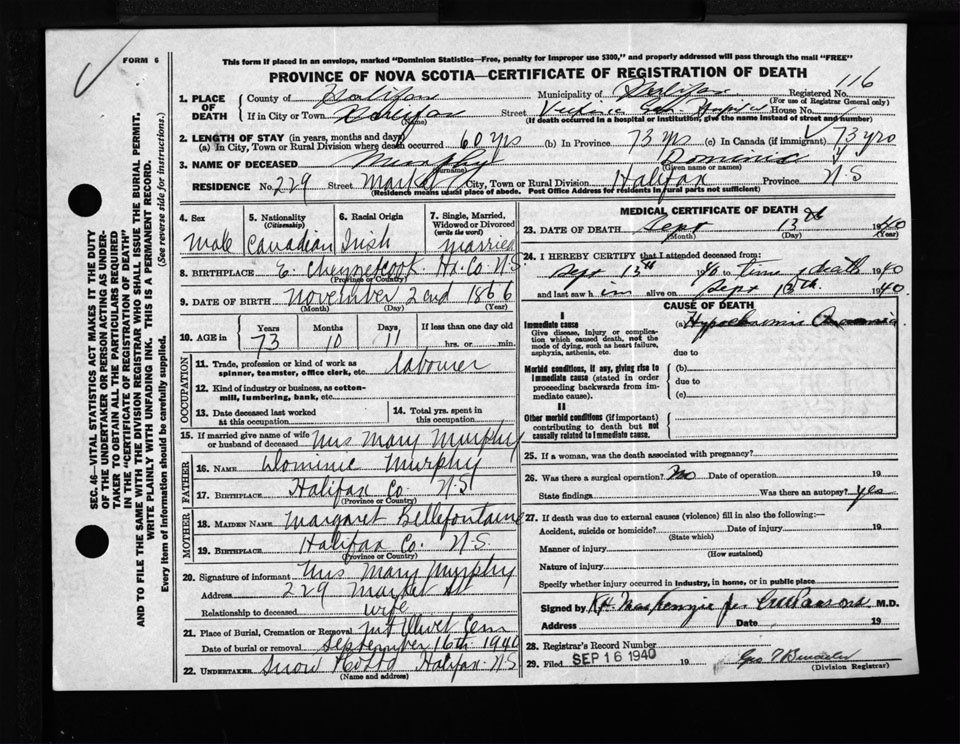 FORM 6
This form if placed in an envelope, marked "Dominion Statistics—Free, penalty for improper use $300," and properly addressed will pass through the mail "FREE"
PROVINCE OF NOVA SCOTIA—CERTIFICATE OF REGISTRATION OF DEATH
Registered No. 116
(For use of Registrar General only)
1. PLACE OF DEATH
County of Halifax Municipality of Halifax
If in City or Town Halifax Street Victoria Gen Hospital House No.
(Name) (If death occurred in a hospital or institution, give the name instead of street and number)
2. LENGTH OF STAY (in years, months and days)
(a) In City, Town or Rural Division where death occurred 60 yrs (b) In Province 73 yrs (c) In Canada (if immigrant) 73 yrs
3. NAME OF DECEASED Murphy Dominic
(Surname) (Given name or names)
RESIDENCE No. 229 Street Market City, Town or Rural Division Halifax Province N S
(Residence means usual place of abode. Post Office Address for residents in rural parts not sufficient)
4. Sex Male
5. Nationality (Citizenship) Canadian
6. Racial Origin Irish
7. Single, Married, Widowed or Divorced (write the word) Married
8. BIRTHPLACE E. Chezzetcook Hx. Co. N.S.
(Province or Country)
9. DATE OF BIRTH November 2nd 1866
(Month) (Day) (Year)
10. AGE in Years 73 Months 10 Days 11 If less than one day old hrs. or min.
OCCUPATION
11. Trade, profession or kind of work as spinner, teamster, office clerk, etc. Labourer
12. Kind of industry or business, as cotton-mill, lumbering, bank, etc.
13. Date deceased last worked at this occupation
14. Total yrs. spent in this occupation
15. If married give name of wife or husband of deceased Mrs Mary Murphy
FATHER
16. NAME Dominic Murphy
17. BIRTHPLACE Halifax Co. N.S
(Province or Country)
MOTHER
18. MAIDEN NAME Margaret Bellefontaine
19. BIRTHPLACE Halifax Co. N.S.
(Province or Country)
20. Signature of informant Mrs Mary Murphy
Address 229 Market St
Relationship to deceased wife
21. Place of Burial, Cremation or Removal Mt Olivet Cem
Date of burial or removal September 16th 1940
22. UNDERTAKER Snow Halifax N.S
(Name and address)
MEDICAL CERTIFICATE OF DEATH
23. DATE OF DEATH Sept 13th 1940
(Month) (Day) (Year)
24. I HEREBY CERTIFY that I attended deceased from:
Sept 13th 1940 to time of death 1940
and last saw him alive on Sept 13th 1940.
CAUSE OF DEATH
I
Immediate cause (a) Hypochromic
Give disease, injury or complication which caused death, not the mode of dying, such as heart failure, asphyxia, asthenia, etc.
due to
Morbid conditions, if any, giving rise to immediate cause (stated in order proceeding backwards from immediate cause).
(b)
due to
(c)
II
Other morbid conditions (if important) contributing to death but not causally related to immediate cause.
25. If a woman, was the death associated with pregnancy?
26. Was there a surgical operation? No Date of operation 19
State findings Was there an autopsy? yes
27. If death was due to external causes (violence) fill in also the following:—
Accident, suicide or homicide? Date of injury 19
(State which)
Manner of injury
(How sustained)
Nature of injury
Specify whether injury occurred in industry, in home, or in public place
Signed by MacKenzie M.D.
Address Date 19
28. Registrar's Record Number
29. Filed SEP 16 1940 19
(Division Registrar)
SEC. 46—VITAL STATISTICS ACT MAKES IT THE DUTY
OF THE UNDERTAKER OR PERSON ACTING AS UNDER-
TAKER TO OBTAIN ALL THE PARTICULARS REQUIRED
IN THE "CERTIFICATE OF REGISTRATION OF DEATH"
AND TO FILE THE SAME WITH THE DIVISION REGISTRAR WHO SHALL ISSUE THE BURIAL PERMIT.
WRITE PLAINLY WITH UNFADING INK. THIS IS A PERMANENT RECORD.
Every item of information should be carefully supplied. (See reverse side for instructions.)